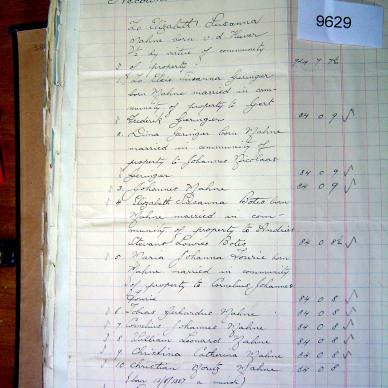 9629
To Elizabeth Susanna
Mahne born v. d. Hever
½ by virtue of community
of property 764 7 7½
1 To Elsie Susanna Geringer
born Mahne married in com-
munity of property to Gert
Frederik Geringer 84 0 9
2 Dina Geringer born Mahne
married in community of
property to Johannes Nicolaas
Geringer 84 0 9
3 Johannes Mahne 84 0 9
4 Elizabeth Susanna Botes born
Mahne married in com-
munity of property to Andries
Lourens Botes 84 0 8½
5 Maria Johanna Fourie born
Mahne married in community
of property to Cornelius Johannes
Fourie 84 0 8
6 Tobias Gerhardus Mahne 84 0 8
7 Cornelius Johannes Mahne 84 0 8
8 William Leonard Mahne 84 0 8
9 Christina Catherina Mahne 84 0 8
10 Christian Mahne 84 0 8
(born 1887 a minor)